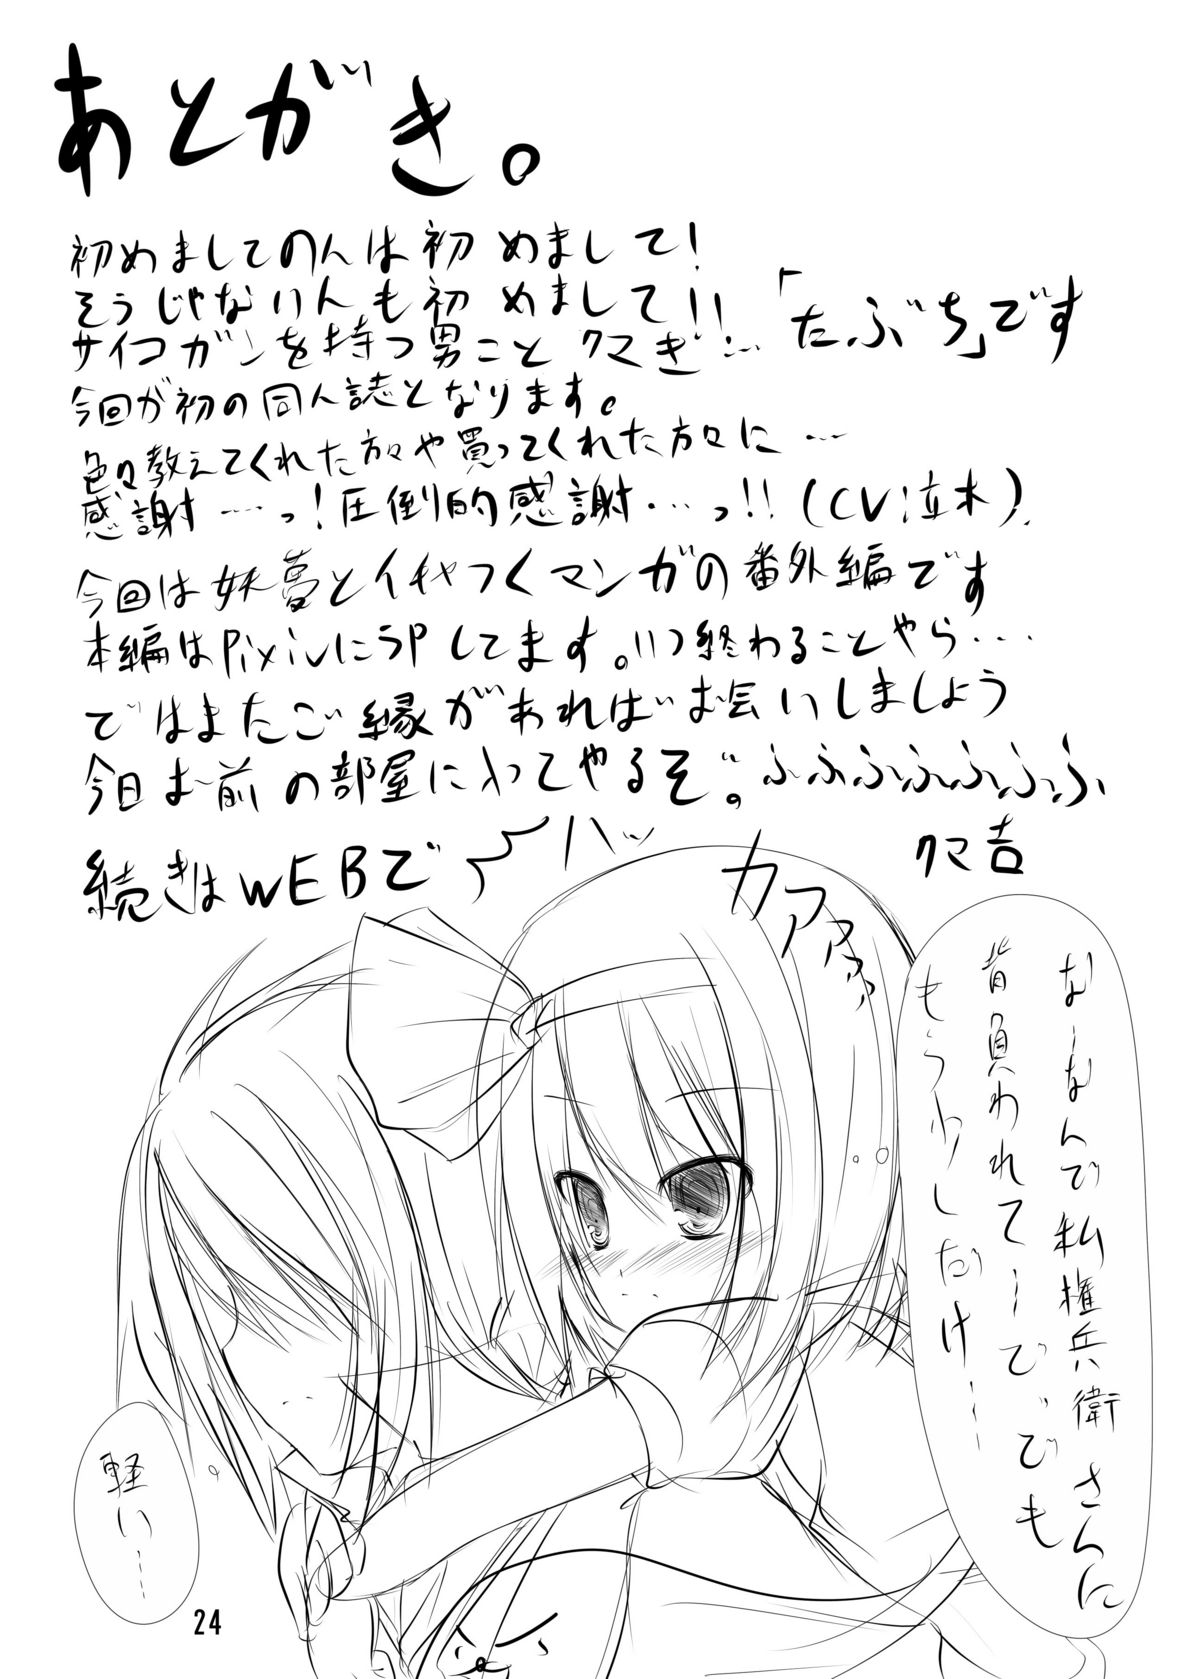 あとがき。
初めましての人は初めまして!
そうじゃない人も初めまして!!「たぶち」です
サイコガンを持つ男こと クマきぎ…
今回が初の同人誌となります。
色々教えてくれた方々や買ってくれた方々に…
感謝……っ!圧倒的感謝……っ!!(CV:立木)
今回は妖夢とイチャつくマンガの番外編です
本編はPixivにうpしてます。いつ終わることやら…
ではまたご縁があればお会いしましょう
今日お前の部屋に入ってやるぞ。ふふふふふふふふ
クマ吉
続きはWEBで
ハッ
カアアアア
なーなんで私権兵衛さんに
背負われてーで、でも
もう少しだけ……
軽い……
24